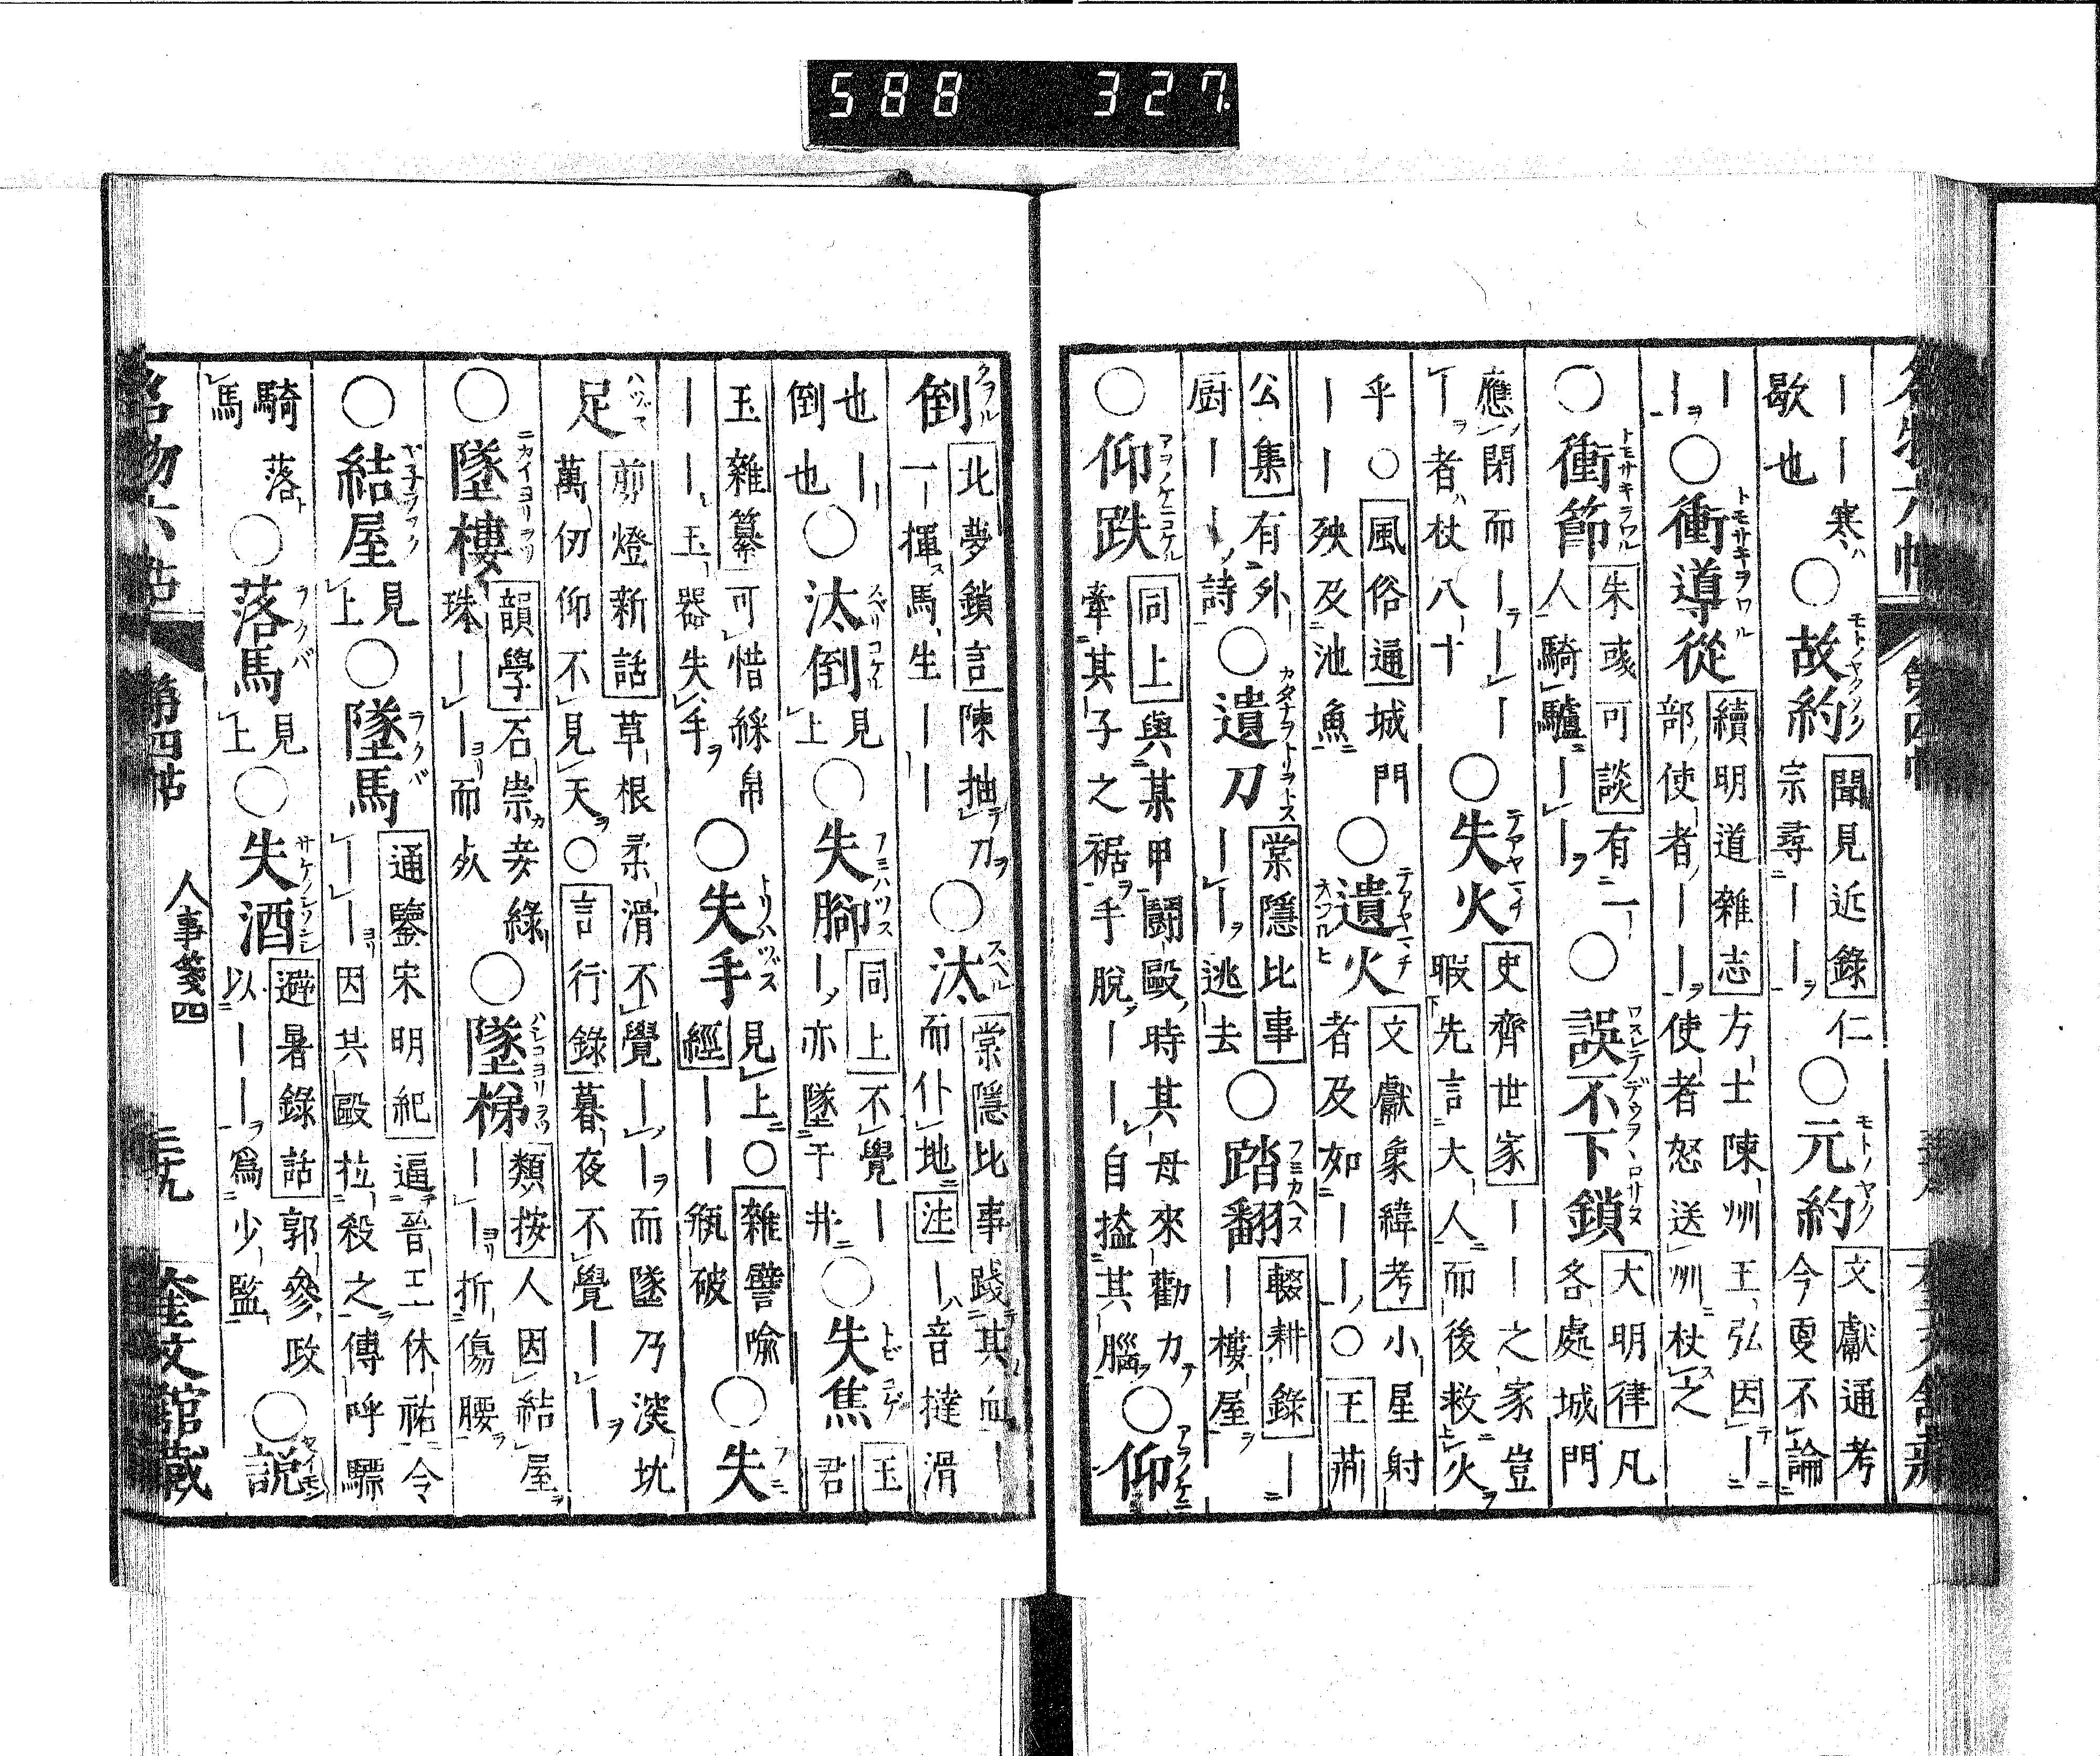 588 327.
——寒歇也○故約聞見近錄仁宗尋——○元約文獻通考今更不論
——○衝導從續明道雜志方士陳州王弘因—部使者——使者怒送州杖之
○衝節朱彧可談有一人騎驢——○誤不下鎖大明律凡各處城門
應閉而————者杖八十○失火史齊世家——之家豈暇先言大人而後救火
乎○風俗通城門——殃及池魚○遺火文獻象緯考小星射者及如——○王荊
公集有外厨——詩○遺刀棠隱比事——逃去○踏翻輟耕錄——樓屋
○仰跌同上與某甲鬪毆時其母來勸力牽其子之裾手脫——自搕其腦○仰
倒北夢鎖言陳抽刀一揮馬生——○汰棠隱比事踐其血—而仆地注—音撻滑
也—倒也○汰倒見上○失腳同上不覺——亦墜于井○失焦王君
玉雜纂可惜綵帛——玉器失手○失手見上○雜譬喩經——瓶破○失
足剪燈新話草根柔滑不覺——而墜乃深坑萬仞仰不見天○言行錄暮夜不覺——
○墜樓韻學石崇妾綠珠——而死○墜梯類按人因結屋——折傷腰
○結屋見上○墜馬通鑒宋明紀逼晉王休祐令——因共毆拉殺之傳呼驃
騎落馬○落馬見上○失酒避暑錄話郭參政以——爲少監○説
名物六帖 第四帖 人事箋四 三十九 奎文館藏